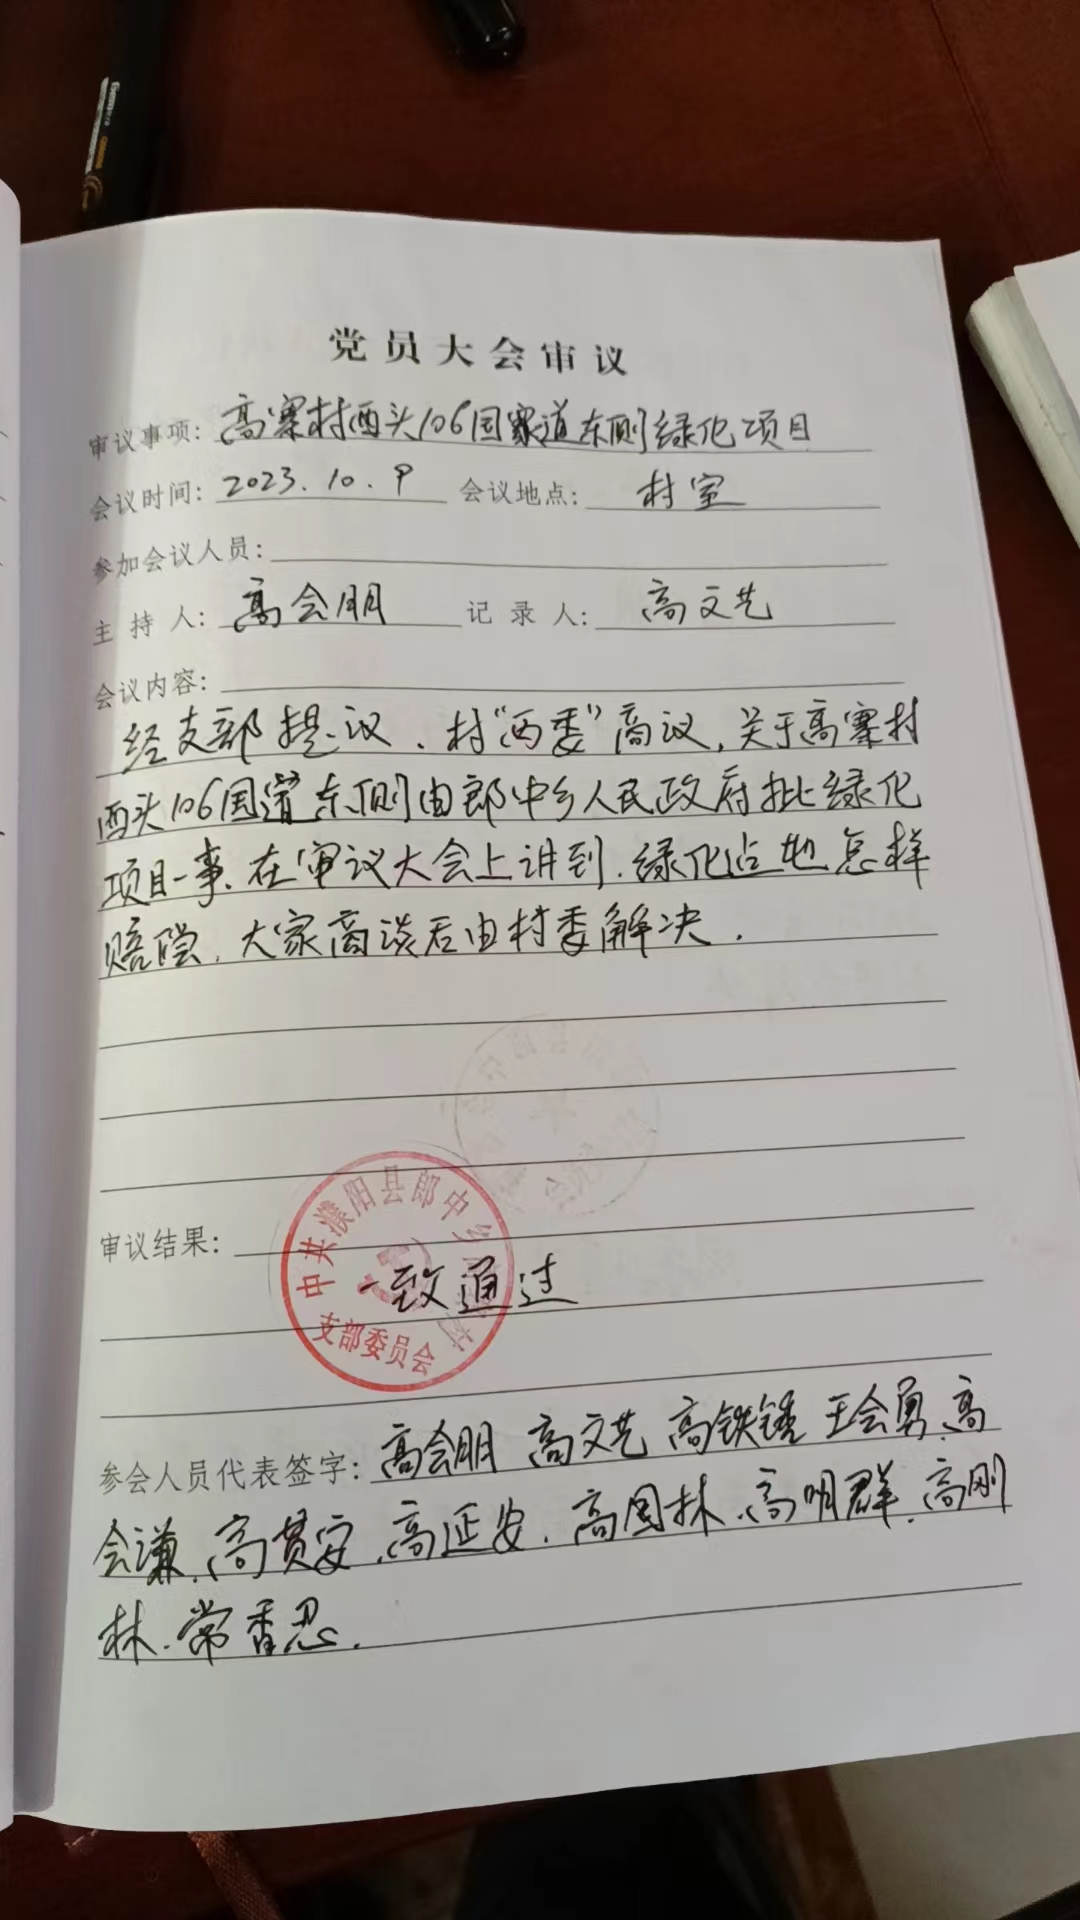 党员大会审议
审议事项: 高寨村西头106国道东侧绿化项目
会议时间: 2023.10.9 会议地点: 村室
参加会议人员:
主持人: 高会朋 记录人: 高文艺
会议内容:
经支部提议、村“两委”商议,关于高寨村
西头106国道东侧由郎中乡人民政府批绿化
项目一事、在审议大会上讲到.绿化占地怎样
赔偿、大家商谈后由村委解决.
审议结果:
一致通过
中共濮阳县郎中乡 村
支部委员会
参会人员代表签字: 高会朋 高文艺 高铁锤 王会勇、高
会谦、高贯安、高延安、高国林、高明群、高刚
林、常香忍.